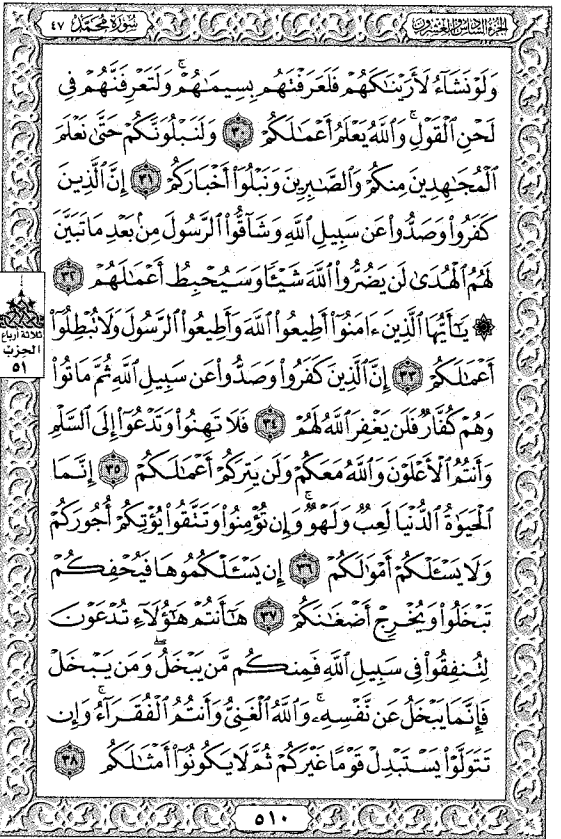 سُورَةُ مُحَمَّد ٤٧
الجزء السادس والعشرون
وَلَوْ نَشَآءُ لَأَرَيْنَٰكَهُمْ فَلَعَرَفْتَهُم بِسِيمَٰهُمْ ۚ وَلَتَعْرِفَنَّهُمْ فِى
لَحْنِ ٱلْقَوْلِ ۚ وَٱللَّهُ يَعْلَمُ أَعْمَٰلَكُمْ ٣٠ وَلَنَبْلُوَنَّكُمْ حَتَّىٰ نَعْلَمَ
ٱلْمُجَٰهِدِينَ مِنكُمْ وَٱلصَّٰبِرِينَ وَنَبْلُوَا۟ أَخْبَارَكُمْ ٣١ إِنَّ ٱلَّذِينَ
كَفَرُوا۟ وَصَدُّوا۟ عَن سَبِيلِ ٱللَّهِ وَشَآقُّوا۟ ٱلرَّسُولَ مِنۢ بَعْدِ مَا تَبَيَّنَ
لَهُمُ ٱلْهُدَىٰ لَن يَضُرُّوا۟ ٱللَّهَ شَيْـًٔا وَسَيُحْبِطُ أَعْمَٰلَهُمْ ٣٢
۞ يَٰٓأَيُّهَا ٱلَّذِينَ ءَامَنُوٓا۟ أَطِيعُوا۟ ٱللَّهَ وَأَطِيعُوا۟ ٱلرَّسُولَ وَلَا تُبْطِلُوٓا۟
أَعْمَٰلَكُمْ ٣٣ إِنَّ ٱلَّذِينَ كَفَرُوا۟ وَصَدُّوا۟ عَن سَبِيلِ ٱللَّهِ ثُمَّ مَاتُوا۟
وَهُمْ كُفَّارٌ فَلَن يَغْفِرَ ٱللَّهُ لَهُمْ ٣٤ فَلَا تَهِنُوا۟ وَتَدْعُوٓا۟ إِلَى ٱلسَّلْمِ
وَأَنتُمُ ٱلْأَعْلَوْنَ وَٱللَّهُ مَعَكُمْ وَلَن يَتِرَكُمْ أَعْمَٰلَكُمْ ٣٥ إِنَّمَا
ٱلْحَيَوٰةُ ٱلدُّنْيَا لَعِبٌ وَلَهْوٌ ۚ وَإِن تُؤْمِنُوا۟ وَتَتَّقُوا۟ يُؤْتِكُمْ أُجُورَكُمْ
وَلَا يَسْـَٔلْكُمْ أَمْوَٰلَكُمْ ٣٦ إِن يَسْـَٔلْكُمُوهَا فَيُحْفِكُمْ
تَبْخَلُوا۟ وَيُخْرِجْ أَضْغَٰنَكُمْ ٣٧ هَٰٓأَنتُمْ هَٰٓؤُلَآءِ تُدْعَوْنَ
لِتُنفِقُوا۟ فِى سَبِيلِ ٱللَّهِ فَمِنكُم مَّن يَبْخَلُ ۖ وَمَن يَبْخَلْ
فَإِنَّمَا يَبْخَلُ عَن نَّفْسِهِۦ ۚ وَٱللَّهُ ٱلْغَنِىُّ وَأَنتُمُ ٱلْفُقَرَآءُ ۚ وَإِن
تَتَوَلَّوْا۟ يَسْتَبْدِلْ قَوْمًا غَيْرَكُمْ ثُمَّ لَا يَكُونُوٓا۟ أَمْثَٰلَكُم ٣٨
ثلاثة أرباع
الحزب
٥١
٥١٠